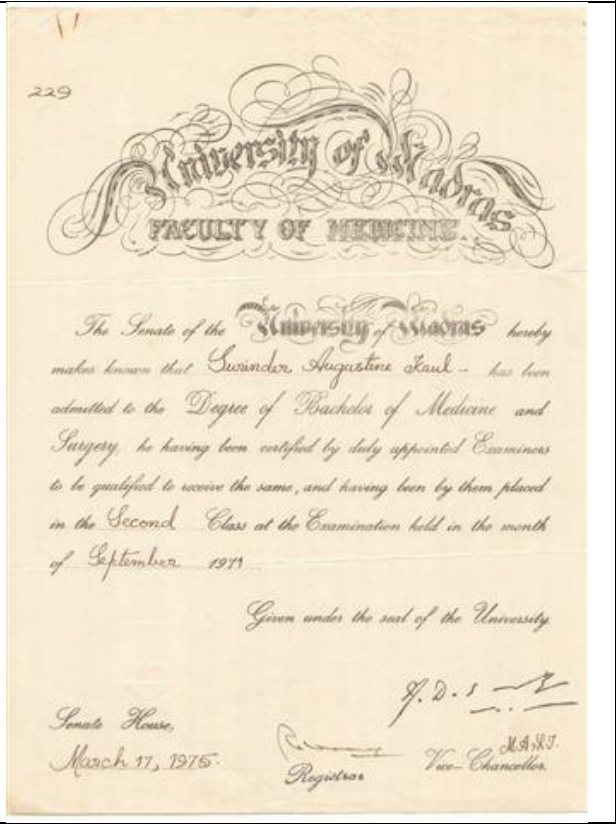 229
University of Madras
FACULTY OF MEDICINE.
The Senate of the University of Madras hereby
makes known that Surinder Augustine Kaul - has been
admitted to the Degree of Bachelor of Medicine and
Surgery, he having been certified by duly appointed Examiners
to be qualified to receive the same, and having been by them placed
in the Second Class at the Examination held in the month
of September
Given under the seal of the University.
Senate House,
March 17, 1975.
Registrar
Vice-Chancellor.